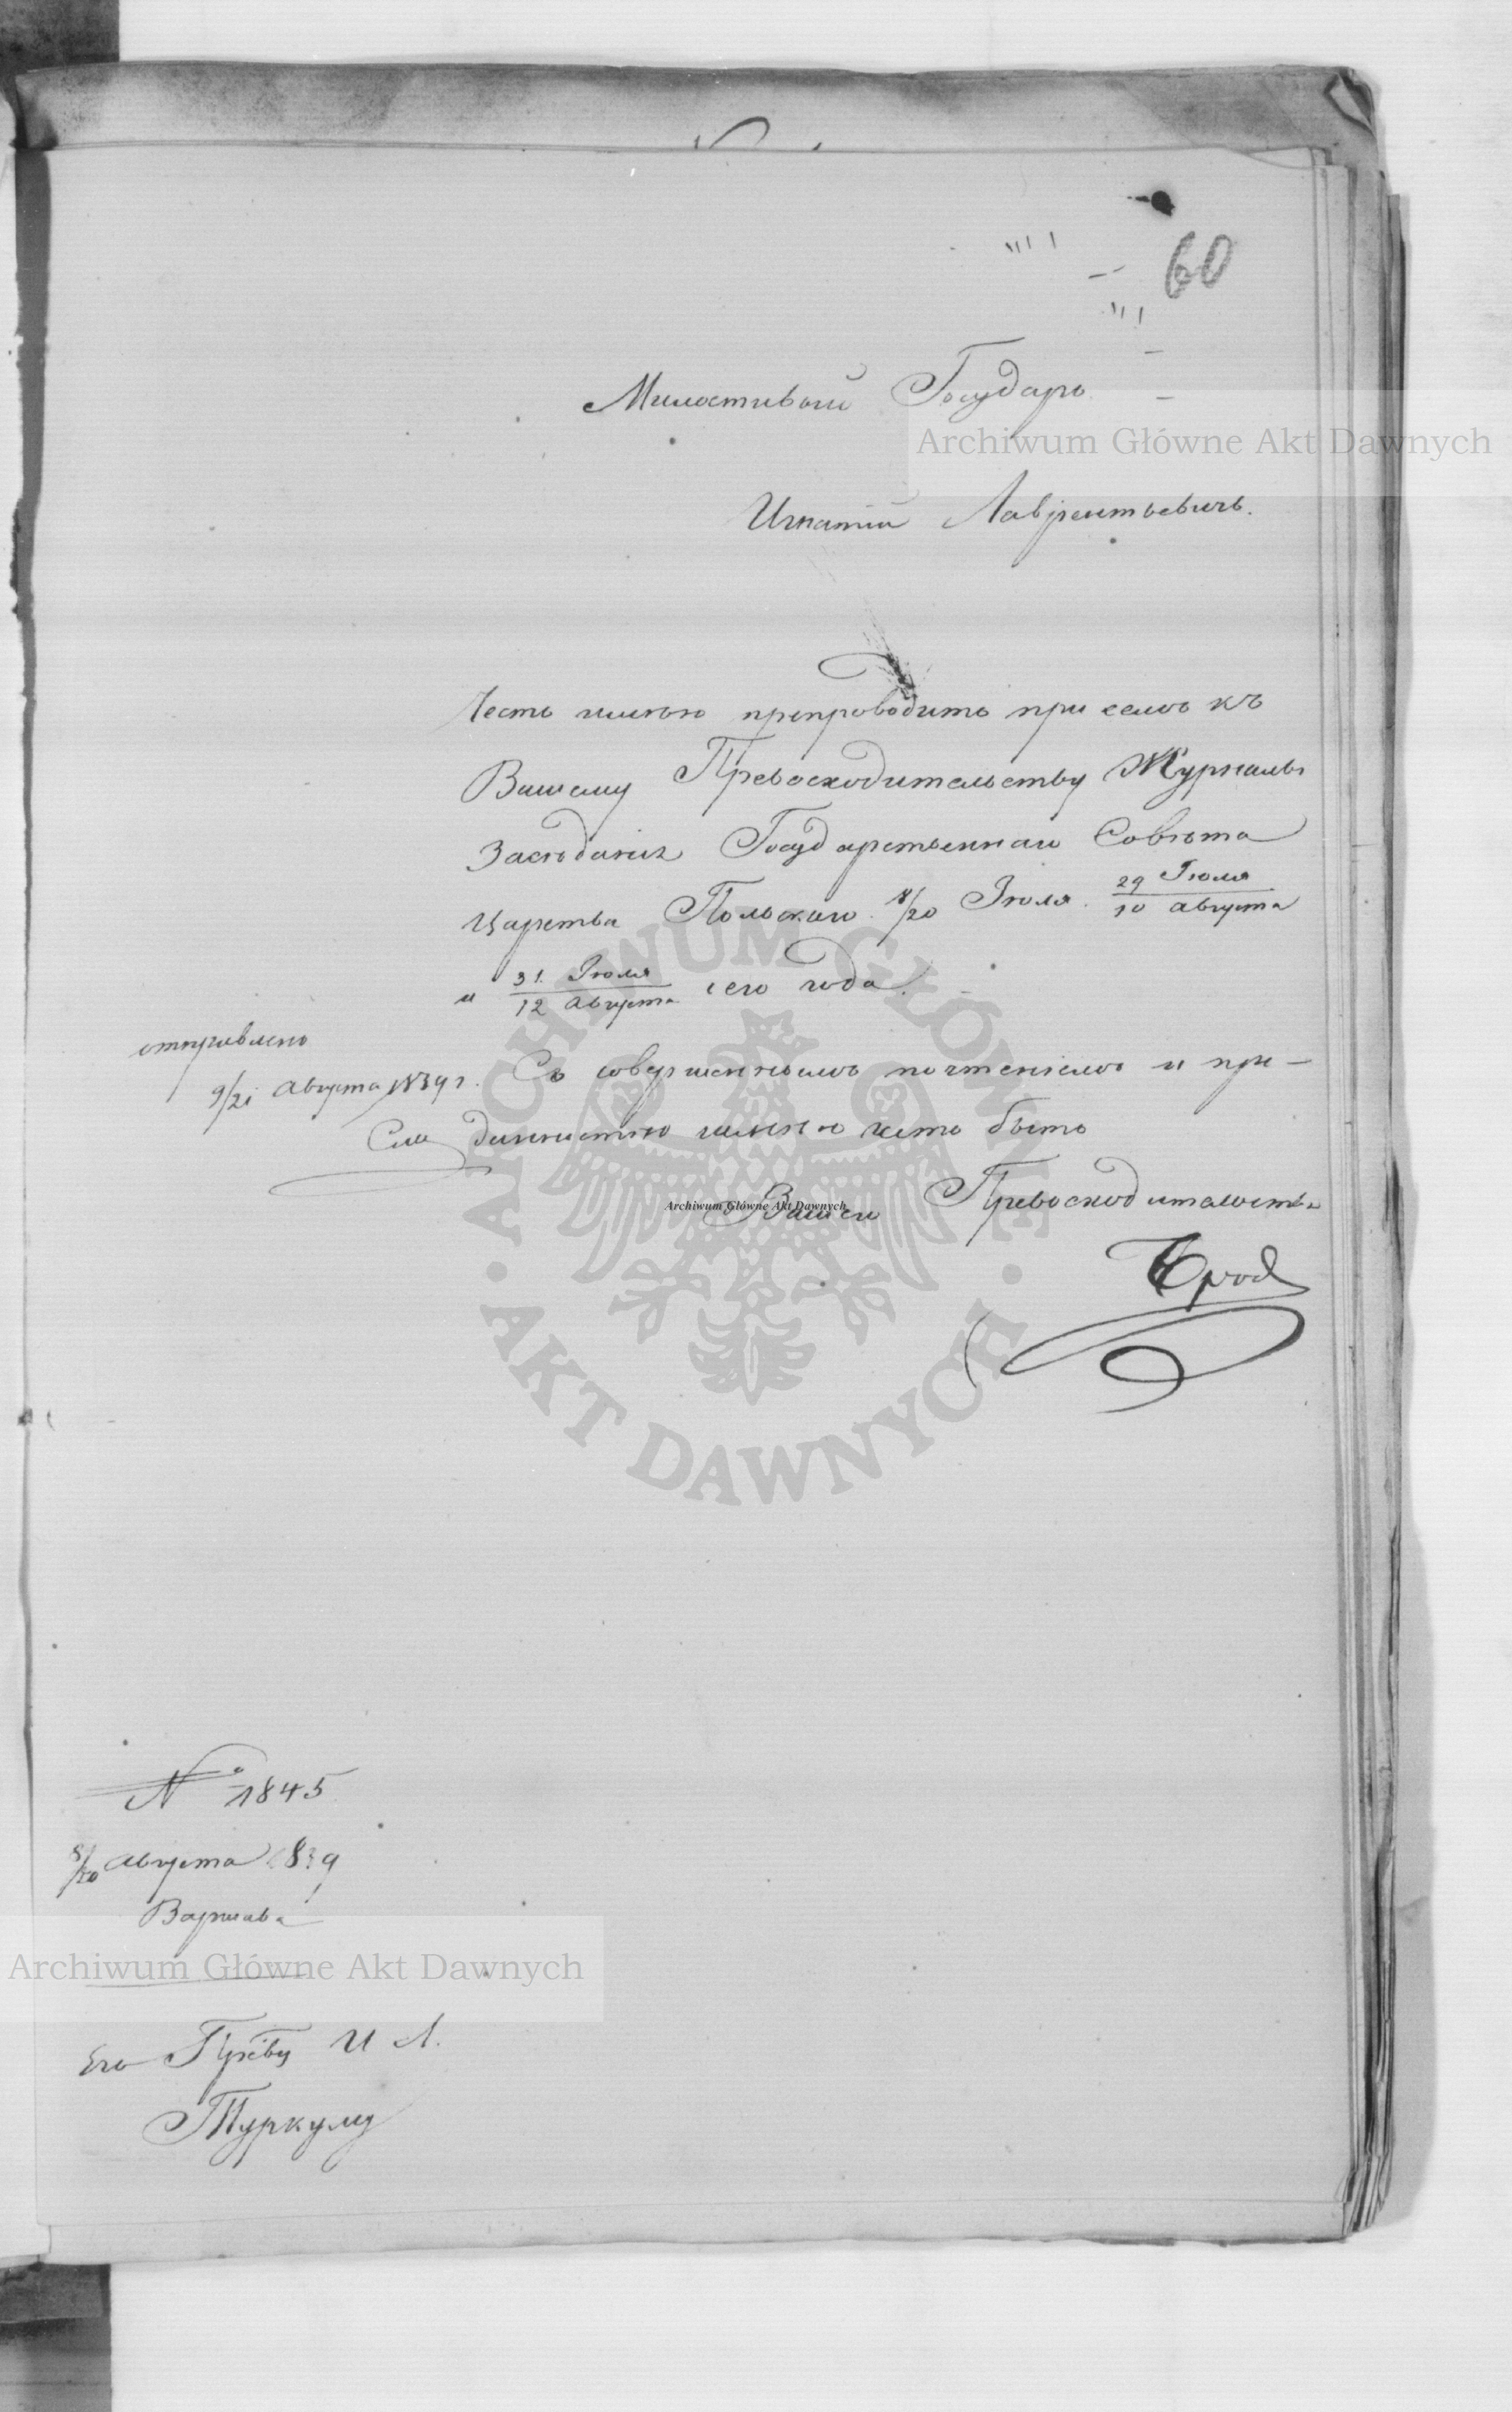 60
Милостивый Государь
Archiwum Główne Akt Dawnych
Игнатій Лаврентьевичъ.
Честь имѣю препроводить при семъ къ
Вашему Превосходительству Журналы
Засѣданія Государственнаго Совѣта
Царства Польскаго 8/20 Іюля. 29 Іюля / 10 Августа
и 31 Іюля / 12 Августа сего года.
отправлено
9/21 Августа 1839 г.
Съ совершеннымъ почтеніемъ и пре-
данностію имѣю честь быть
Archiwum Główne Akt Dawnych
Вашего Превосходительства
ARCHIWUM GŁÓWNE · AKT DAWNYCH ·
№ 1845
8/20 Августа 1839
Варшава
Archiwum Główne Akt Dawnych
Его Превву И Л.
Туркулу